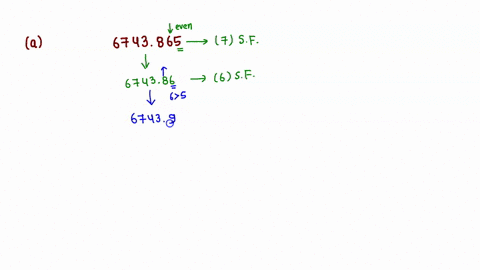 ↓ even
(a) 6743.865 → (7) S.F.
↓ ↑
6743.86 → (6) S.F.
↓ 6>5
6743.9